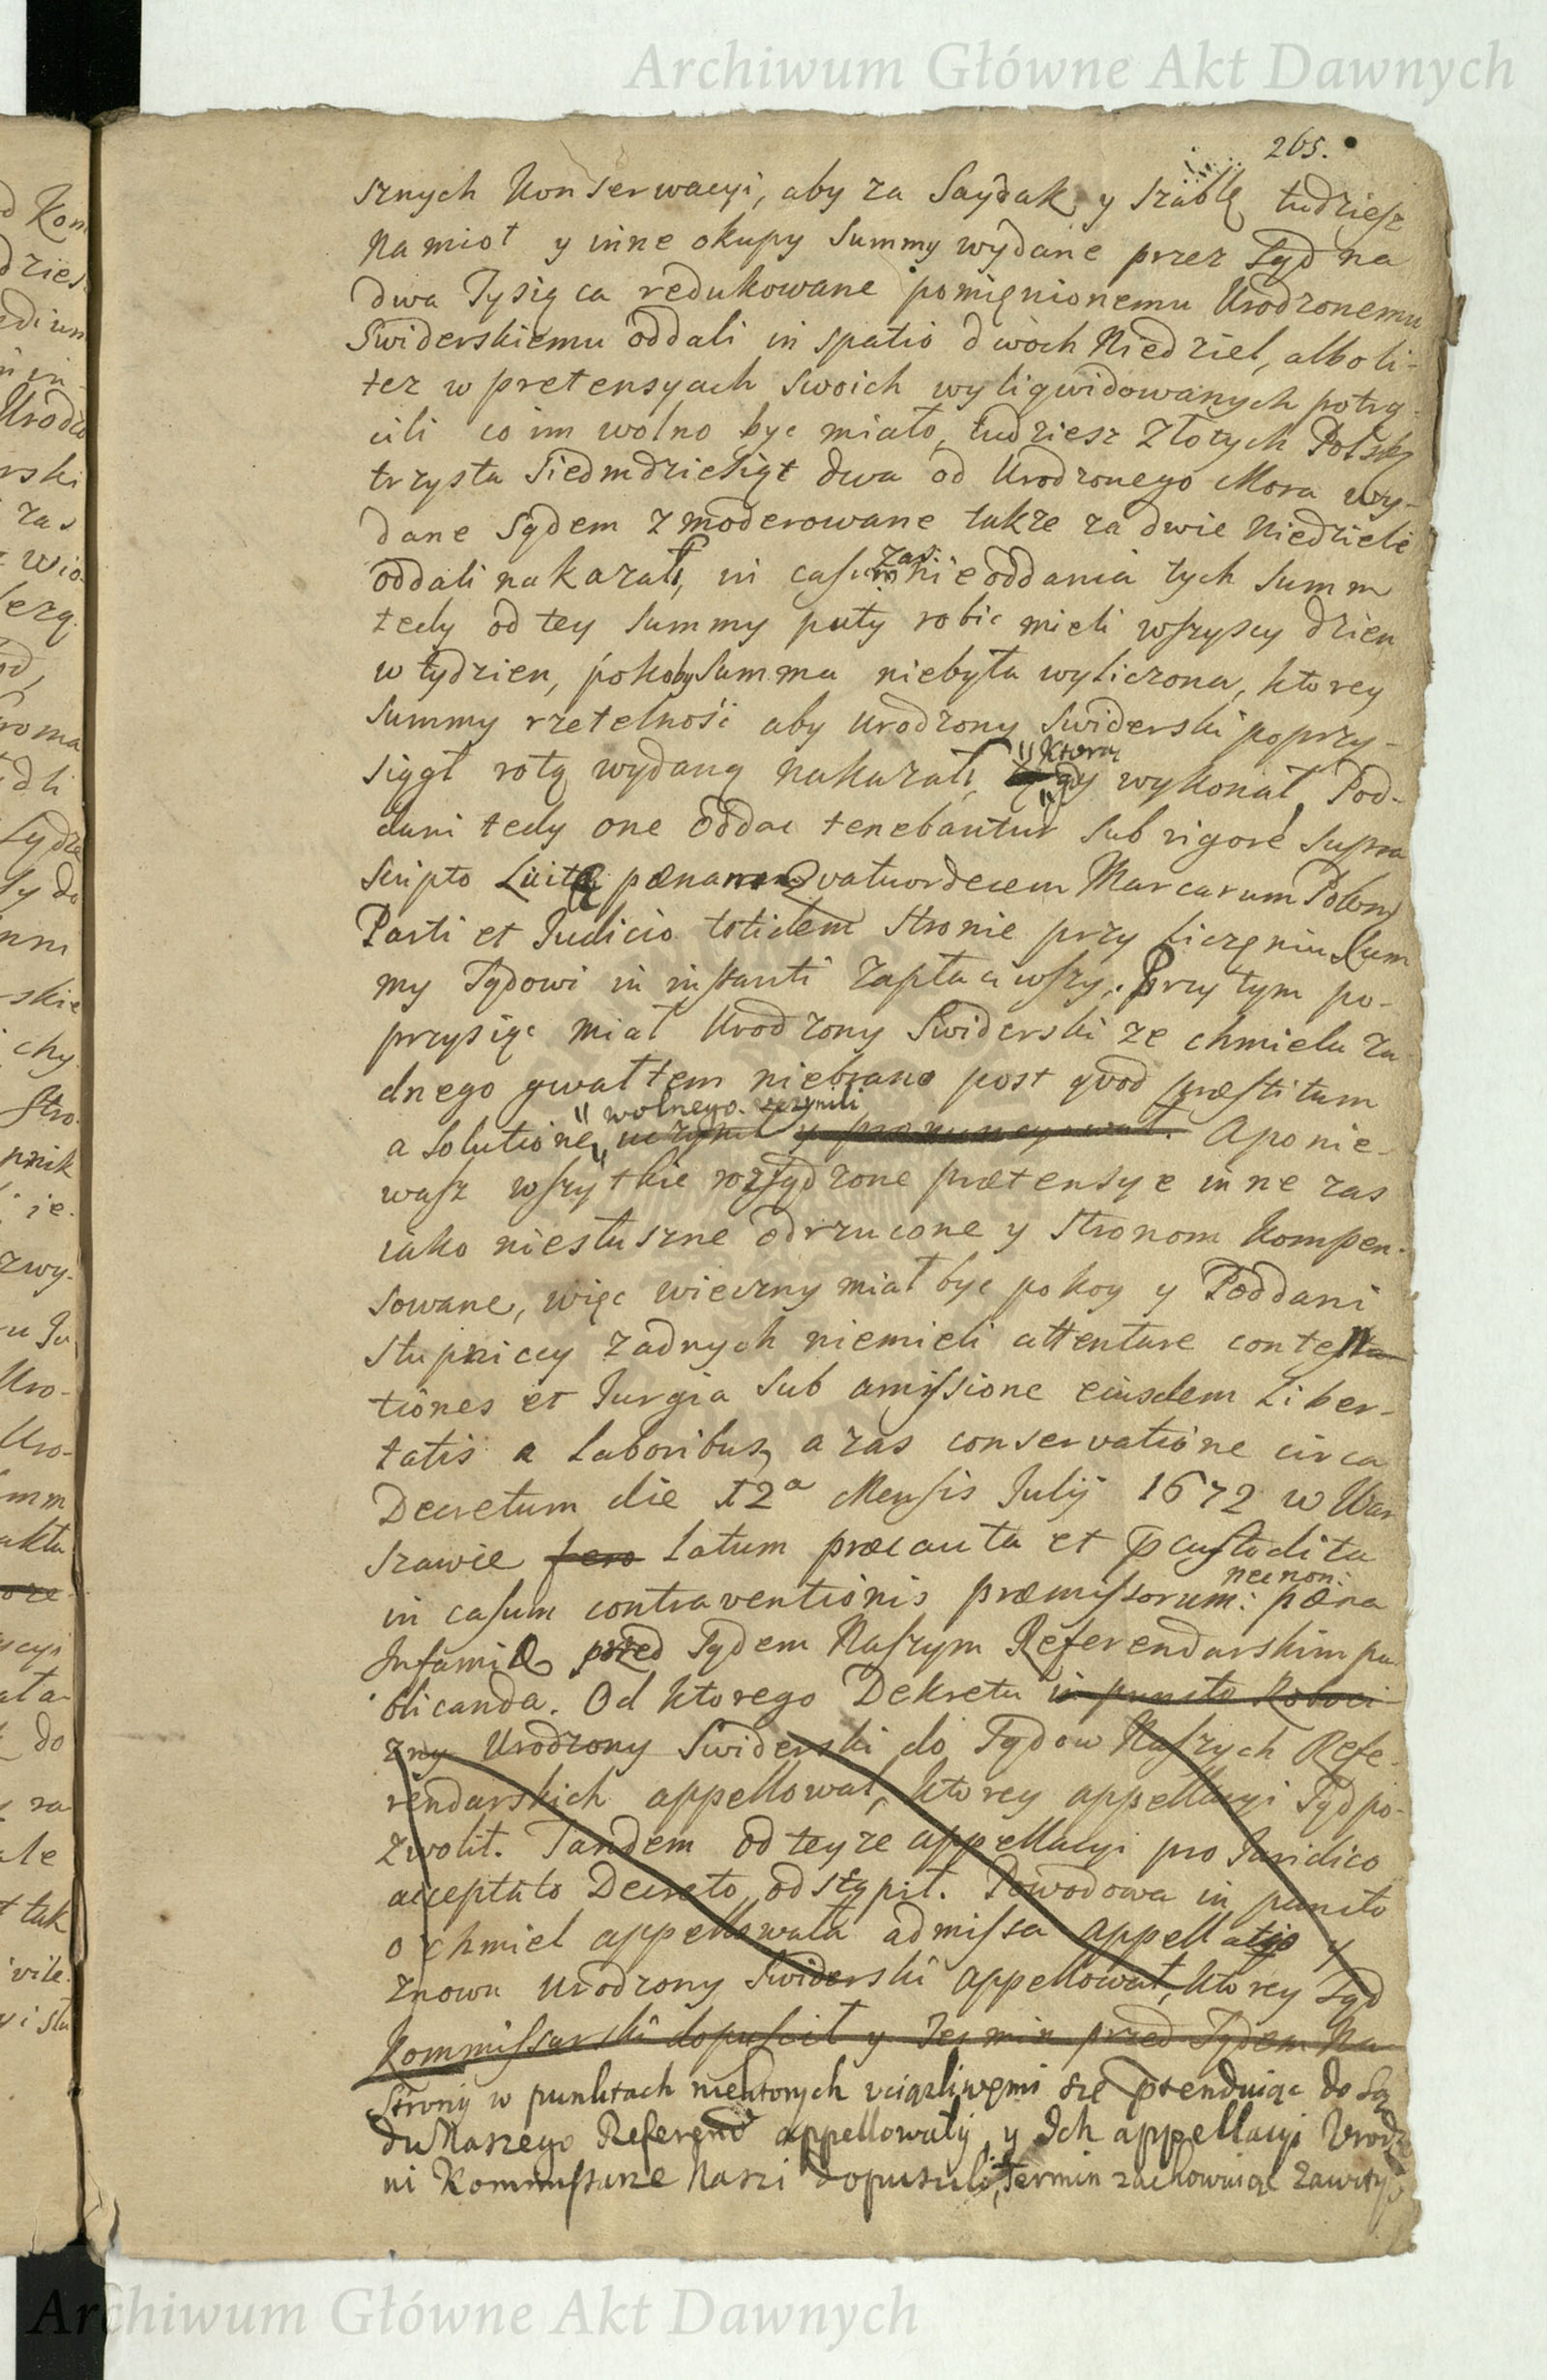 Archiwum Główne Akt Dawnych
265.
sznych Konserwacyi, aby za Saydak y szablę tudziesz
Namiot y inne okupy Summy wydane przez Sąd na
dwa Tysiąca redukowane pomięnionemu Urodzonemu
Swiderskiemu oddali in spatio dwoch Niedziel, albo li-
tez w pretensyach swoich wyligwidowanych potrą-
cili co im wolno byc miało, tudziesz Złotych Polsk
trzysta Siedmdziesiąt dwa od Urodzonego Mora wy-
dane Sądem zmoderowane takze za dwie Niedzieli
oddali nakazali, in casum zas nie oddania tych Summ
tedy od tey Summy puty robic mieli wszyscy dzien
w tydzien, pokoby Summa niebyła wyliczona, ktorey
Summy rzetelność aby Urodzony Swiderski poprzy-
siągł rotą wydaną nakazali, ktorą gdy wykonał, Pod-
dani tedy one oddac tenebantur sub rigore supra
scripto Luita pænarum Quatuordecem Marcarum Polon
Parti et Judicio totidem Stronie przy liczęniu Sum
my Sądowi in instanti zapłaciwszy. Przytym po-
przysiąc miał Urodzony Swiderski ze chmielu za
dnego gwałtem niebrano post quod præstitum
" wolnego uczynili
a solutione, uczynił y pronuncyował. A ponie-
wasz wszytkie rozsądzone prætensye inne zas
iako niesłuszne odrzucone y Stronom kompen-
sowane, więc wieczny miał byc pokoy y Poddani
Słupniccy zadnych niemieli attentare contesta
tiones et Jurgia sub amissione eiusdem Liber-
tatis a Laboribus, a zas conservatione circa
Decretum die 12a Mensis Julij 1672 w War
szawie fero Latum præcauta et custodita
in casum contraventionis præmissorum: necnon: pæna
Infamiæ przed Sądem Naszym Referendarskim pu
blicanda. Od ktorego Dekretu in puncto Roboci
zny Urodzony Swiderski do Sądow Naszych Refe-
rendarskich appellował, ktorey appellacyi Sąd po-
zwolił. Tandem od teyze appellacyi pro Juridico
acceptato Decreto, odstąpił. Powodowa in puncto
o chmiel appellowała admissa appellatio y
znowu Urodzony Swiderski appellował, ktorey Sąd
Kommissarski dopuscił y Termin przed Sądem Na
Strony w punktach niektorych vciązliwęmi się prætenduiąc do Są
du Naszego Referend appellowały, y Ich appellacyi Vrodz
ni Kommissarze Nasi dopuscili, termin zachowuiąc zawity
Archiwum Główne Akt Dawnych